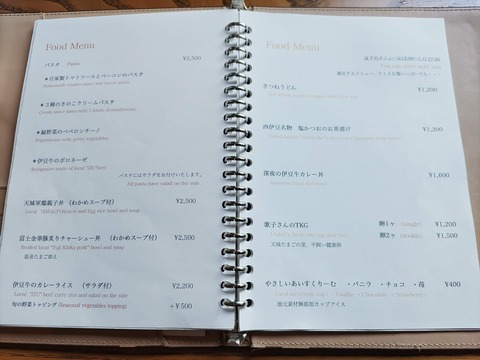 Food Menu
パスタ Pasta ¥2,500
★自家製トマトソースとベーコンのパスタ
Homemade tomato sauce and bacon pasta
★3種のきのこクリームパスタ
Cream sauce pasta with 3 kinds of mushrooms
★緑野菜のペペロンチーノ
Peperoncino with green vegetables
★伊豆牛のボロネーゼ
Bolognaise made of local "IZU" beef
パスタにはサラダをお付けいたします。
All pasta have salad on the side
天城軍鶏親子丼 (わかめスープ付) ¥2,500
Local "AMAGI" chicken and Egg rice bowl and soup
富士金華豚炙りチャーシュー丼 (わかめスープ付) ¥2,500
Broiled local "Fuji Kinka pork" bowl and soup
温泉たまご添え
伊豆牛のカレーライス (サラダ付) ¥2,200
Local "IZU" beef curry rice and salad on the side
旬の野菜トッピング (Seasonal vegetables topping) +¥500
Food Menu
You can order until
きつねうどん ¥1,200
西伊豆名物 塩かつおのお茶漬け ¥1,200
深夜の伊豆牛カレー丼 ¥1,600
歌子さんのTKG 卵1ヶ (single) ¥1,200
卵2ヶ (double) ¥1,500
天城たまごの里、平飼い健康卵
やさしいあいすくりーむ ・バニラ ・チョコ ・苺 ¥400
Local ice cream cup (Vanilla ・Chocolate ・Strawberry)
地元素材無添加カップアイス